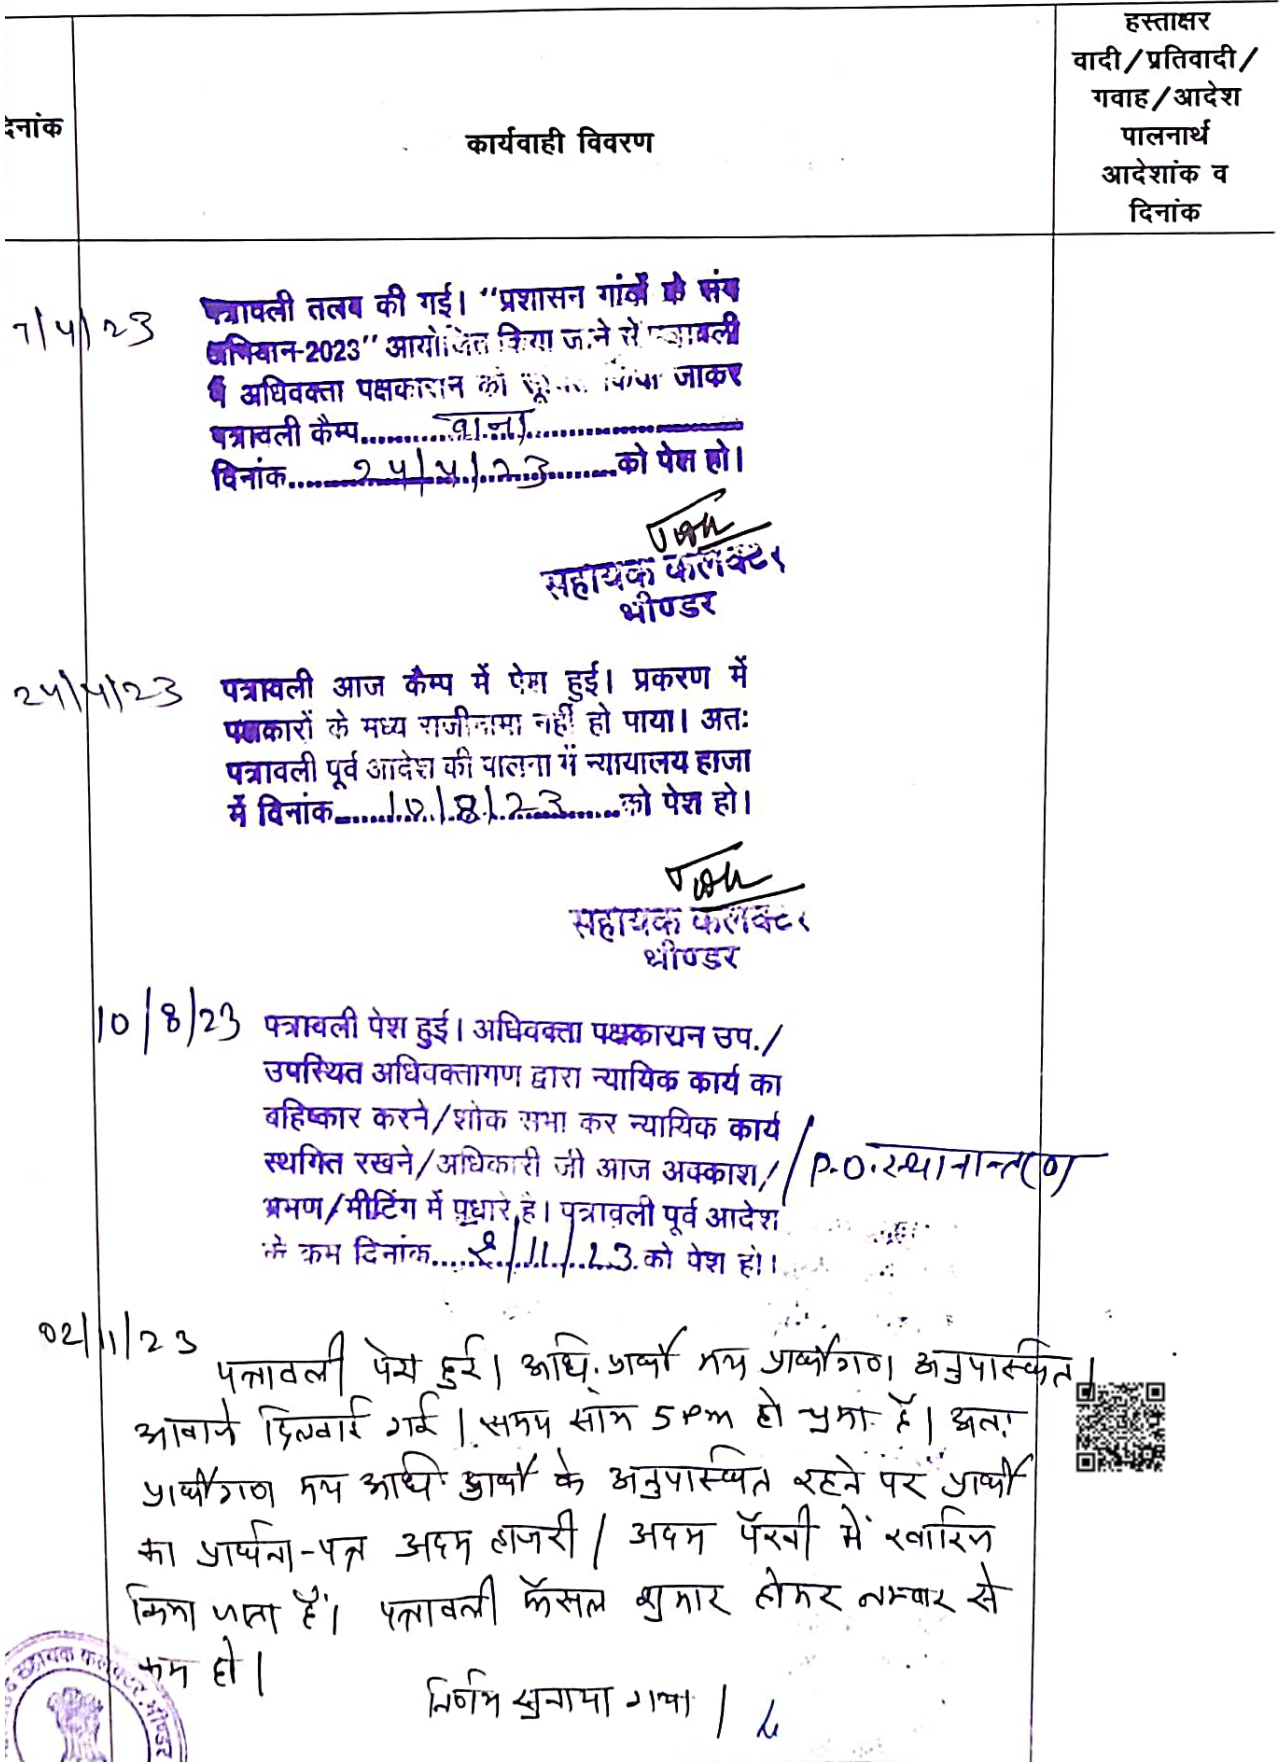 हस्ताक्षर
वादी/प्रतिवादी/
गवाह/आदेश
पालनार्थ
आदेशांक व
दिनांक
दिनांक
कार्यवाही विवरण
7/4/23
पत्रावली तलब की गई। "प्रशासन गांवों के संग
अभियान-2023" आयोजित किया जाने से पत्रावली
में अधिवक्ता पक्षकारान को सूचित किया जाकर
पत्रावली कैम्प
दिनांक......24/4/23......को पेश हो।
सहायक कलक्टर
भीण्डर
24/4/23
पत्रावली आज कैम्प में पेश हुई। प्रकरण में
पक्षकारों के मध्य राजीनामा नहीं हो पाया। अतः
पत्रावली पूर्व आदेश की पालना में न्यायालय हाजा
में दिनांक......10/8/23......को पेश हो।
सहायक कलक्टर
भीण्डर
10/8/23
पत्रावली पेश हुई। अधिवक्ता पक्षकारान उप./
उपस्थित अधिवक्तागण द्वारा न्यायिक कार्य का
बहिष्कार करने/शोक सभा कर न्यायिक कार्य
स्थगित रखने/अधिकारी जी आज अवकाश/
/P.O. स्थानान्तरण
भ्रमण/मीटिंग में पधारे है। पत्रावली पूर्व आदेश
के क्रम दिनांक......2/11/23.को पेश हो।
02/11/23
पत्रावली पेश हुई। अधि. प्रार्थी मय प्रार्थीगण अनुपास्थित।
आवाजे दिलवाई गई। समय सांम 5 PM हो चुका है। अतः
प्रार्थीगण मय अधि. प्रार्थी के अनुपास्थित रहने पर प्रार्थी
का प्रार्थना-पत्र अदम हाजरी / अदम पैरवी में खारिज
किया जाता है। पत्रावली फैसल शुमार होकर नम्बर से
कम हो।
निर्णय सुनाया गया।
सहायक कलक्टर, भीण्डर